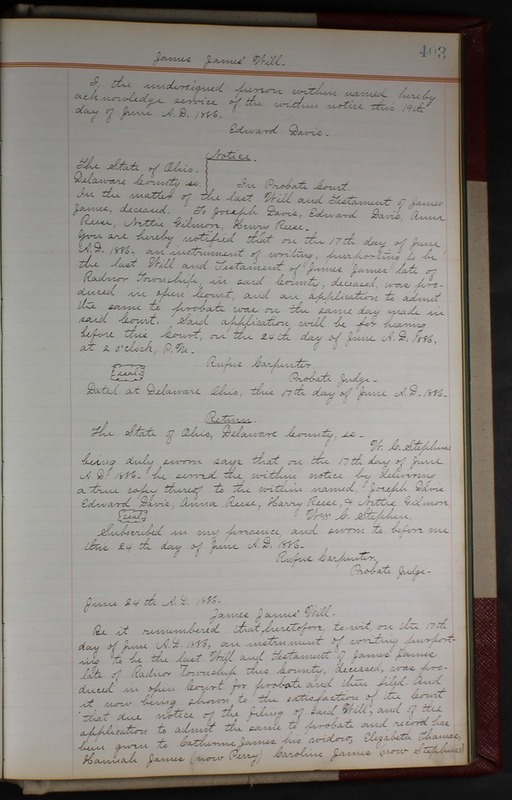 403
James James' Will.
I the undersigned person within named hereby
acknowledge service of the within notice this 19th
day of June A.D. 1886.
Edward Davis.
Notice.
The State of Ohio.
Delaware County ss. In Probate Court.
In the matter of the last Will and Testament of James
James, deceased. To Joseph Davis, Edward Davis, Anna
Reese, Nettie Gilmore, Henry Reese.
You are hereby notified that on the 17th day of June
A.D. 1886, an instrument of writing, purporting to be
the last Will and Testament of James James late of
Radnor Township in said County, deceased, was pro-
duced in open Court, and an application to admit
the same to probate was on the same day made in
said Court. Said application will be for hearing
before this Court, on the 24th day of June A.D. 1886,
at 2 o'clock, P.M.
Rufus Carpenter
(seal) Probate Judge.
Dated at Delaware Ohio, this 17th day of June A.D. 1886.
Return.
The State of Ohio, Delaware County, ss.
W. C. Stephens
being duly sworn says that on the 17th day of June
A.D. 1886 he served the within notice by delivering
a true copy thereof to the within named, Joseph Davis
Edward Davis, Anna Reese, Harry Reese, & Nettie Gilmore
(seal) Wm C. Stephens
Subscribed in my presence, and sworn to before me
this 24th day of June A.D. 1886.
Rufus Carpenter,
Probate Judge.
June 24th A.D. 1886.
James James' Will.
Be it remembered that heretofore, to-wit on the 17th
day of June A.D. 1886, an instrument of writing purport-
ing to be the last Will and Testament of James James
late of Radnor Township this County, deceased, was pro-
duced in open Court for probate and then filed. And
it now being shown to the satisfaction of the Court
that due notice of the filing of said Will, and of the
application to admit the same to probate and record has
been given to Catherine James his widow, Elizabeth Thomas,
Hannah James (now Perry) Caroline James (now Stephens)